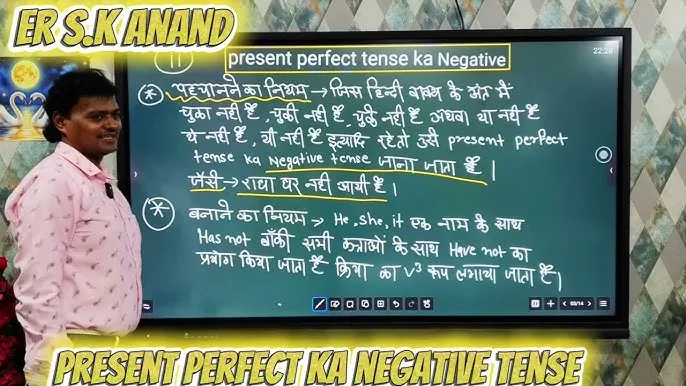 ER S.K ANAND
11 present perfect tense ka Negative
22:28
* पहचानने का नियम → जिस हिन्दी वाक्य के अंत में
चुका नहीं है, चुकी नहीं है, चुके नहीं है अथवा या नहीं है
ये नहीं है, यी नहीं है इत्यादि रहे तो उसे present perfect
tense ka Negative tense जाना जाता है।
जैसे → राधा घर नहीं आयी है।
* बनाने का नियम → He, she, it एक नाम के साथ
Has not बाँकी सभी कर्त्ताओं के साथ Have not का
प्रयोग किया जाता है क्रिया का v³ रूप लगाया जाता है।
03/14
PRESENT PERFECT KA NEGATIVE TENSE